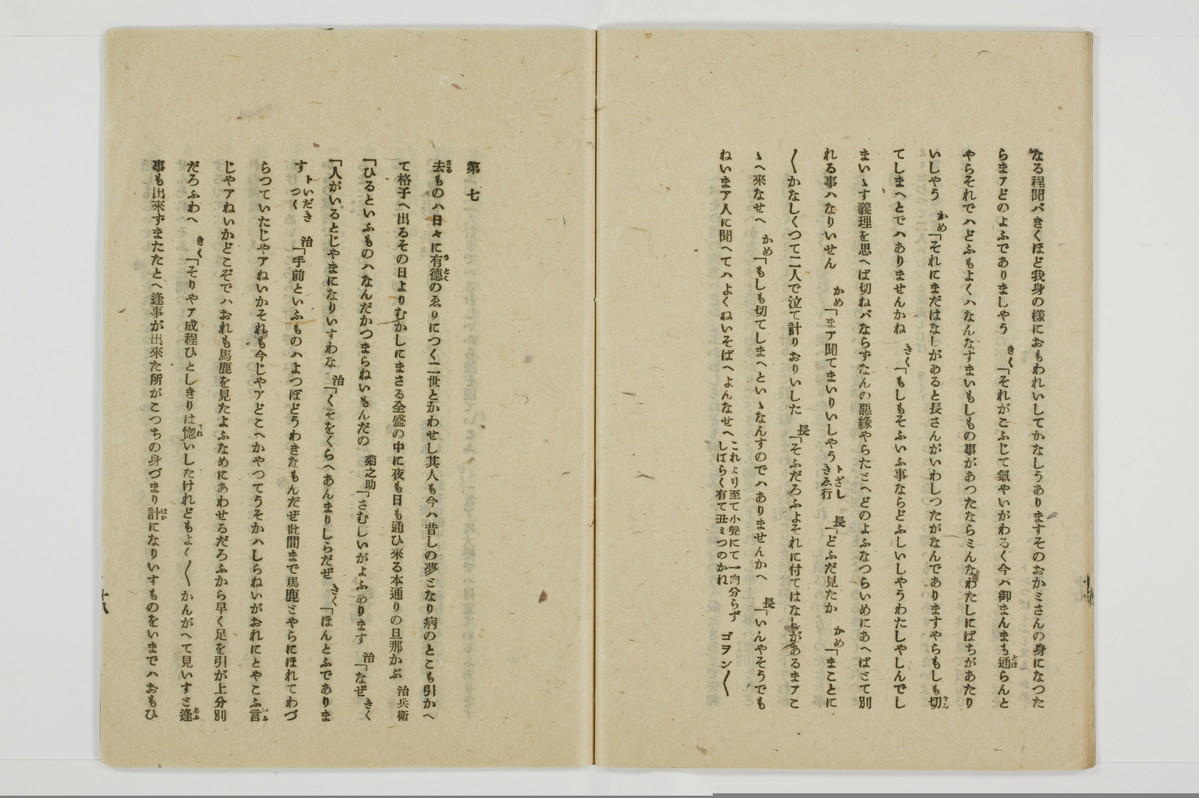 なる程聞バきくほど我身の様におもわれいしてかなしうありますそのおかミさんの身になつた
らまアどのよふでありましやう きく「それがこふじて氣やいがわるく今ハ御まんまも通らんと
やらそれでハどふもよくハなんなすまいもしもの事があつたならミんなわたしにばちがあたり
いしやう かめ「それにまだはなしがあると長さんがいわしつたがなんでありますやらもしも切
てしまへとでハありませんかね きく「もしもそふいふ事ならどふしいしやうわたしやしんでし
まいゝす義理を思へば切ねバならずなんの惡緣やらたとへどのよふなつらいめにあへばとて別
れる事ハなりいせん かめ「まア聞てまいりいしやう トざしきゑ行 長「どふだ見たか かめ「まことに
〳〵かなしくつて二人で泣て計りおりいした 長「そふだろふよそれに付てはなしがあるまアこ
ゝへ來なせへ かめ「もしも切てしまへといゝなんすのでハありませんかへ 長「いんやそうでも
ねいまア人に聞へてハよくねいそばへよんなせへ これより至て小聲にて一向分らず しばらく有て丑ミつのかね ゴヲン〳〵
第七
去ものハ日々に有德のゑりにつく二世とかわせし其人も今ハ昔しの夢となり病のとこも引かへ
て格子へ出るその日よりむかしにまさる全盛の中に夜も日も通ひ來る本通りの旦那かぶ 治兵衛
「ひるといふものハなんだかつまらねいもんだの 菊之助「さむしいがよふあります 治「なぜ きく
「人がいるとじやまになりいすわな 治「くそをくらへあんまりしらだぜ きく「ほんとふでありま
す トいだきつく 治「手前といふものハよつぽどうわきなもんだぜ世間まで馬鹿とやらにほれてわづ
らつていたじやアねいかそれも今じやアどこへかやつてうそかハしらねいがおれにとやこふ言
じやアねいかどこぞでハおれも馬鹿を見たよふなためにあわせるだろふから早く足を引が上分別
だろふわへ きく「そりやア成程ひとしきりは惚いしたけれどもよく〳〵かんがへて見いすと逢
事も出來ずまたたとへ逢事が出來た所がこつちの身づまり計になりいすものをいまでハおもひ